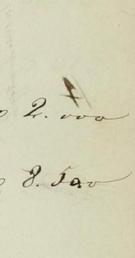 2.000
8.500